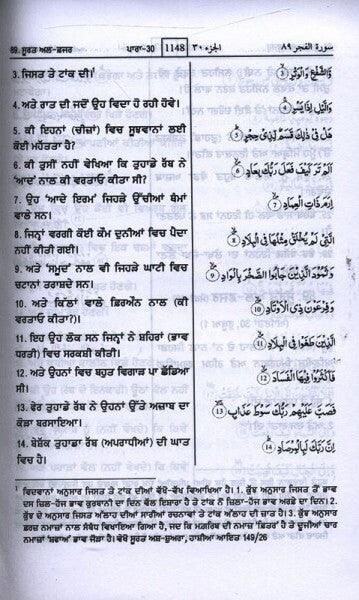 89. ਸੂਰਤ ਅਲ-ਫਜਰ ਪਾਰਾ-30 1148 الجزء ٣٠ سورة الفجر ٨٩
3. ਜਿਸਤ ਤੇ ਟਾਂਕ ਦੀ।¹
وَالشَّفْعِ وَالْوَتْرِ 3
4. ਅਤੇ ਰਾਤ ਦੀ ਜਦੋਂ ਉਹ ਵਿਦਾ ਹੋ ਰਹੀ ਹੋਵੇ।
وَالَّيْلِ إِذَا يَسْرِ 4
5. ਕੀ ਇਹਨਾਂ (ਚੀਜ਼ਾਂ) ਵਿਚ ਸੂਝਵਾਨਾਂ ਲਈ
ਕੋਈ ਮਹੱਤਤਾ ਹੈ?
هَلْ فِي ذٰلِكَ قَسَمٌ لِّذِي حِجْرٍ 5
6. ਕੀ ਤੁਸੀਂ ਨਹੀਂ ਵੇਖਿਆ ਕਿ ਤੁਹਾਡੇ ਰੱਬ ਨੇ
‘ਆਦ’ ਨਾਲ ਕੀ ਵਰਤਾਓ ਕੀਤਾ ਸੀ?
أَلَمْ تَرَ كَيْفَ فَعَلَ رَبُّكَ بِعَادٍ 6
7. ਉਹ ‘ਆਦੇ ਇਰਮ’ ਜਿਹੜੇ ਉੱਚੀਆਂ ਥੰਮਾਂ
ਵਾਲੇ ਸਨ।
إِرَمَ ذَاتِ الْعِمَادِ 7
8. ਜਿਨ੍ਹਾਂ ਵਰਗੀ ਕੋਈ ਕੌਮ ਦੁਨੀਆਂ ਵਿਚ ਪੈਦਾ
ਨਹੀਂ ਕੀਤੀ ਗਈ।
الَّتِي لَمْ يُخْلَقْ مِثْلُهَا فِي الْبِلَادِ 8
9. ਅਤੇ ‘ਸਮੂਦਾਂ’ ਨਾਲ ਵੀ ਜਿਹੜੇ ਘਾਟੀ ਵਿਚ
ਚਟਾਨਾਂ ਤਰਾਸ਼ਦੇ ਸਨ।
وَثَمُودَ الَّذِينَ جَابُوا الصَّخْرَ بِالْوَادِ 9
10. ਅਤੇ ਕਿੱਲਾਂ ਵਾਲੇ ਫ਼ਿਰਔਨ ਨਾਲ (ਕੀ
ਵਰਤਾਓ ਕੀਤਾ?)।
وَفِرْعَوْنَ ذِي الْأَوْتَادِ 10
11. ਇਹ ਉਹ ਲੋਕ ਸਨ ਜਿਨ੍ਹਾਂ ਨੇ ਸ਼ਹਿਰਾਂ (ਭਾਵ
ਧਰਤੀ) ਵਿਚ ਸਰਕਸ਼ੀ ਕੀਤੀ।
الَّذِينَ طَغَوْا فِي الْبِلَادِ 11
12. ਅਤੇ ਉਹਨਾਂ ਵਿਚ ਬਹੁਤ ਵਿਗਾੜ ਪਾ ਛੱਡਿਆ
ਸੀ।
فَأَكْثَرُوا فِيهَا الْفَسَادَ 12
13. ਫੇਰ ਤੁਹਾਡੇ ਰੱਬ ਨੇ ਓਹਨਾਂ ਉੱਤੇ ਅਜ਼ਾਬ ਦਾ
ਕੋੜਾ ਬਰਸਾਇਆ।
فَصَبَّ عَلَيْهِمْ رَبُّكَ سَوْطَ عَذَابٍ 13
14. ਬੇਸ਼ੱਕ ਤੁਹਾਡਾ ਰੱਬ (ਅਪਰਾਧੀਆਂ) ਦੀ ਘਾਤ
ਵਿਚ ਹੈ।
إِنَّ رَبَّكَ لَبِالْمِرْصَادِ 14
¹ ਵਿਦਵਾਨਾਂ ਅਨੁਸਾਰ ਜਿਸਤ ਤੇ ਟਾਂਕ ਦੀਆਂ ਵੱਖੋ-ਵੱਖ ਵਿਆਖਿਆ ਹੈ। 1. ਕੁੱਝ ਅਨੁਸਾਰ ਜਿਸਤ ਤੋਂ ਭਾਵ
ਦਸ ਜ਼ਿਲ-ਹੱਜ ਭਾਵ ਕੁਰਬਾਨੀ ਦਾ ਦਿਨ ਵੱਲ ਇਸ਼ਾਰਾ ਹੈ ਤੇ ਟਾਂਕ ਨੌਂ ਜ਼ਿਲਾ-ਹੱਜ ਭਾਵ ਅਰਫ਼ੇ ਦਾ ਦਿਨ। 2.
ਕੁੱਝ ਦੇ ਅਨੁਸਾਰ ਜਿਸਤ ਅੱਲਾਹ ਦੀਆਂ ਸਾਰੀਆਂ ਰਚਨਾਵਾਂ ਤੇ ਟਾਂਕ ਅੱਲਾਹ ਦੀ ਜ਼ਾਤ ਹੈ। 3. ਕੁੱਝ ਅਨੁਸਾਰ
ਫ਼ਰਜ਼ ਨਮਾਜ਼ਾਂ ਨਾਲ ਸੰਬੰਧ ਵਿਖਾਇਆ ਗਿਆ ਹੈ, ਜਦ ਕਿ ਮਗ਼ਰਿਬ ਦੀ ਨਮਾਜ਼ ‘ਵਿਤਰ’ ਹੈ ਤੇ ਦੂਜੀਆਂ ਚਾਰ
ਨਮਾਜ਼ਾਂ ‘ਸ਼ਫ਼ਆ’ ਭਾਵ ਜੋੜਾ ਹੈ। ਵੇਖੋ ਸੂਰਤ ਅਸ਼-ਸ਼ੂਅਰਾ, ਹਾਸ਼ੀਆ ਆਇਤ 149/26